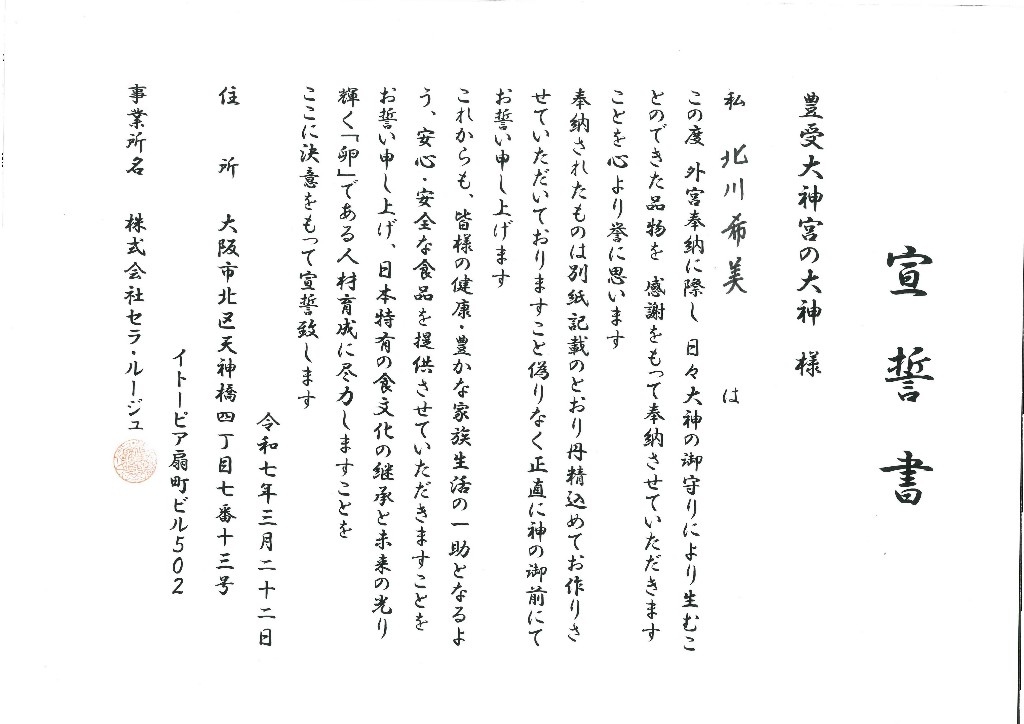 宣誓書
豊受大神宮の大神 様
私 北川希美 は
この度 外宮奉納に際し 日々大神の御守りにより生むこ
とのできた品物を 感謝をもって奉納させていただきます
ことを心より誉に思います
奉納されたものは別紙記載のとおり丹精込めてお作りさ
せていただいておりますこと偽りなく正直に神の御前にて
お誓い申し上げます
これからも、皆様の健康・豊かな家族生活の一助となるよ
う、安心・安全な食品を提供させていただきますことを
お誓い申し上げ、日本特有の食文化の継承と未来の光り
輝く「卵」である人材育成に尽力しますことを
ここに決意をもって宣誓致します
令和七年三月二十二日
住 所 大阪市北区天神橋四丁目七番十三号
イトーピア扇町ビル502
事業所名 株式会社セラ・ルージュ